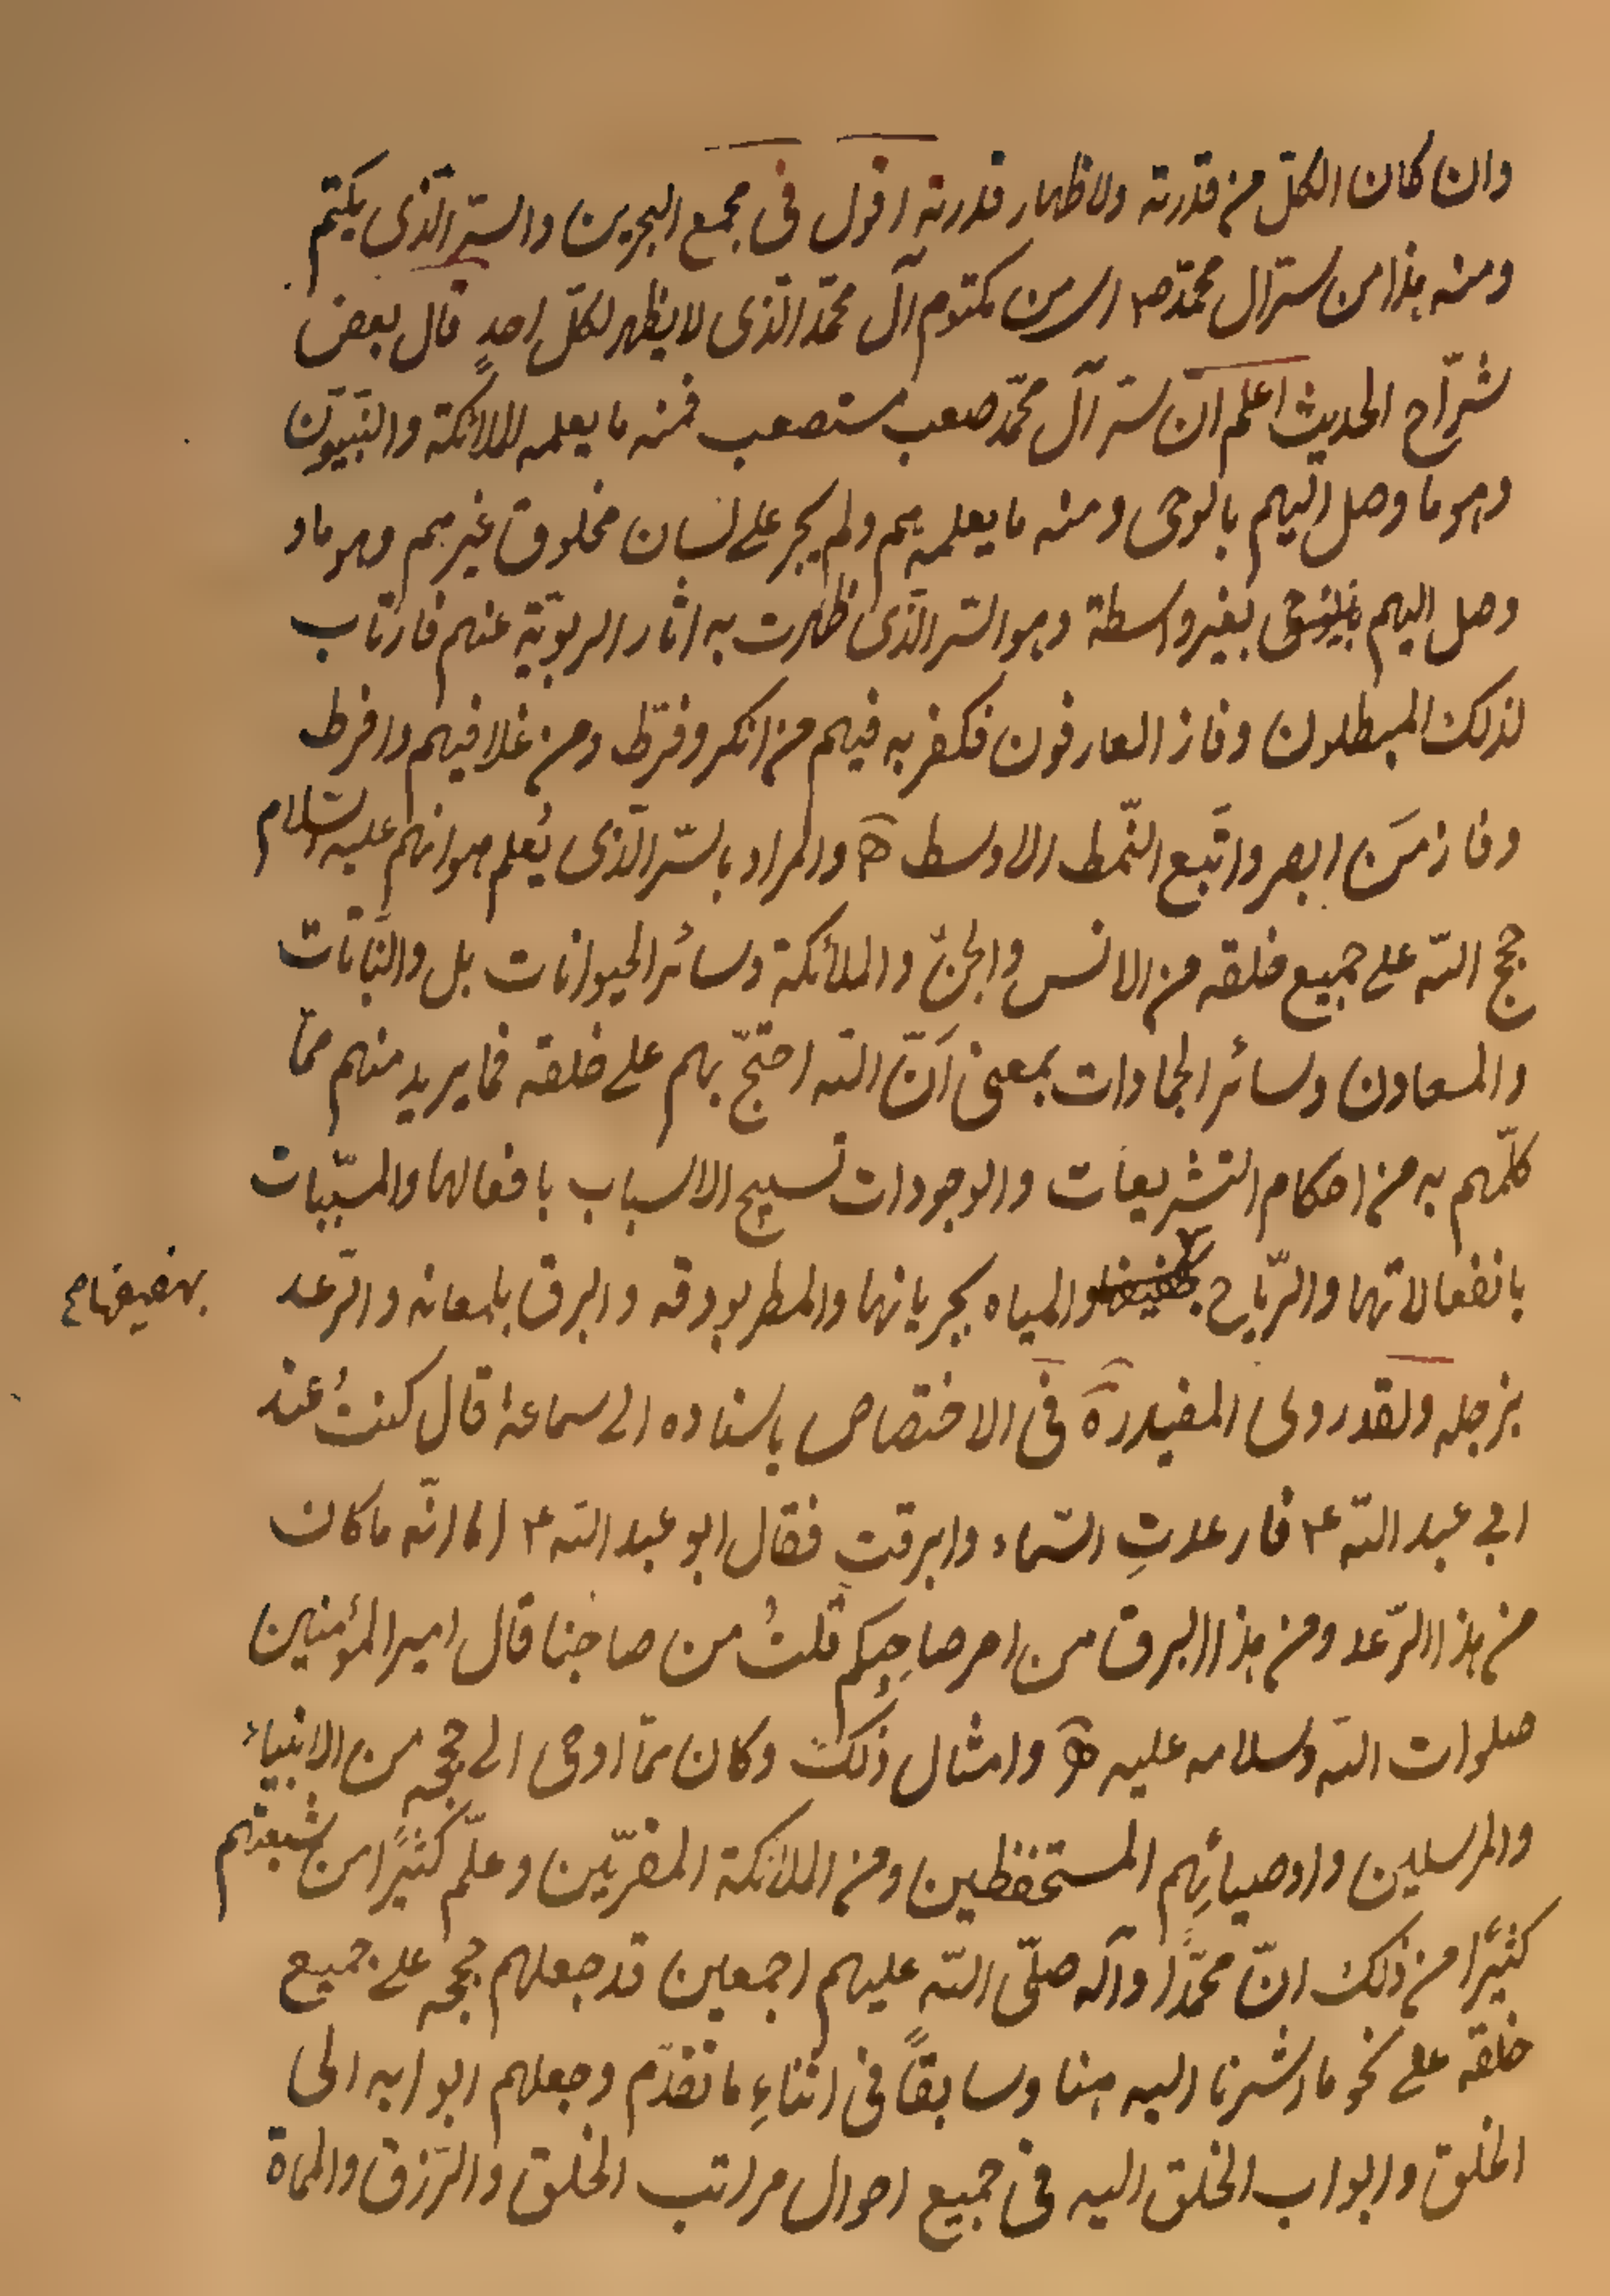 وان كان الكلّ من قدرته ولاظهار قدرته اقول فى مجمع البحرين والسّر الّذى يكتم
ومنه هذا من سرّ ال محمّد ص٢ اى من مكتوم آل محمّد الّذى لا يظهر لكلّ احدٍ قال بعض
شرّاح الحديث اعلم انّ سرّ آل محمّد صعب مستصعب فمنه ما يعلمه الملائكة والنّبيّون
وهو ما وصل اليهم بالوحى ومنه ما يعلمه هم ولم يجر على لسان مخلوق غيرهم وهو ما و
وصل اليهم بغير واسطة وهو السّر الّذى ظهرت به اثار الربوبيّة عنهم فارتاب
لذلك المبطلون وفاز العارفون فكفر به فيهم من انكر وفرّط ومن غلا فيهم وافرط
وفاز مَن ابصر واتّبع النّمط الاوسط ه والمراد بالسّر الّذى يُعلم هو انهم عليه السّلام
حجج اللّه على جميع خلقه من الانس والجنّ والملائكة وسائر الحيوانات بل والنّباتات
والمعادن وسائر الجمادات بمعنى اَنّ اللّه احتجّ بهم على خلقه فما يريد منهم ممّا
كلّمهم به من احكام التشريعات والوجودات تسبيح الاسباب بافعالها والمسبّبات
بانفعالاتها والرّياح والمياه بجريانها والمطر بودقه والبرق بلمعانه والرّعد
بهفيفها ص
بزجله ولقد روى المفيد ره فى الاختصاص باسناده الى سماعة قال كنتُ عند
ابى عبد اللّه ع٢ فارعدتِ السّماء وابرقت فقال ابو عبد اللّه ع٢ اما انّه ما كان
من هذا الرّعد ومن هذا البرق من امر صاحِبكم قلتُ من صاحبنا قال امير المؤمنين
صلوات اللّه وسلامه عليه ه وامثال ذلك وكان ممّا اوحى الى حججه من الانبياء
والمرسلين واوصيائِهم المستحفظين ومن الملائكة المقرّبين وعلّم كثيرًا من شيعتهم
كثيرًا من ذلك انّ محمّدًا وآله صلّى اللّه عليهم اجمعين قد جعلهم حججه على جميع
خلقه على نحو ما اشرنا اليه هنا وسابقًا فى اثناءِ ما تقدّم وجعلهم ابوابه الى
الخلق وابواب الخلق اليه فى جميع احوال مراتب الخلق والرّزق والمماة